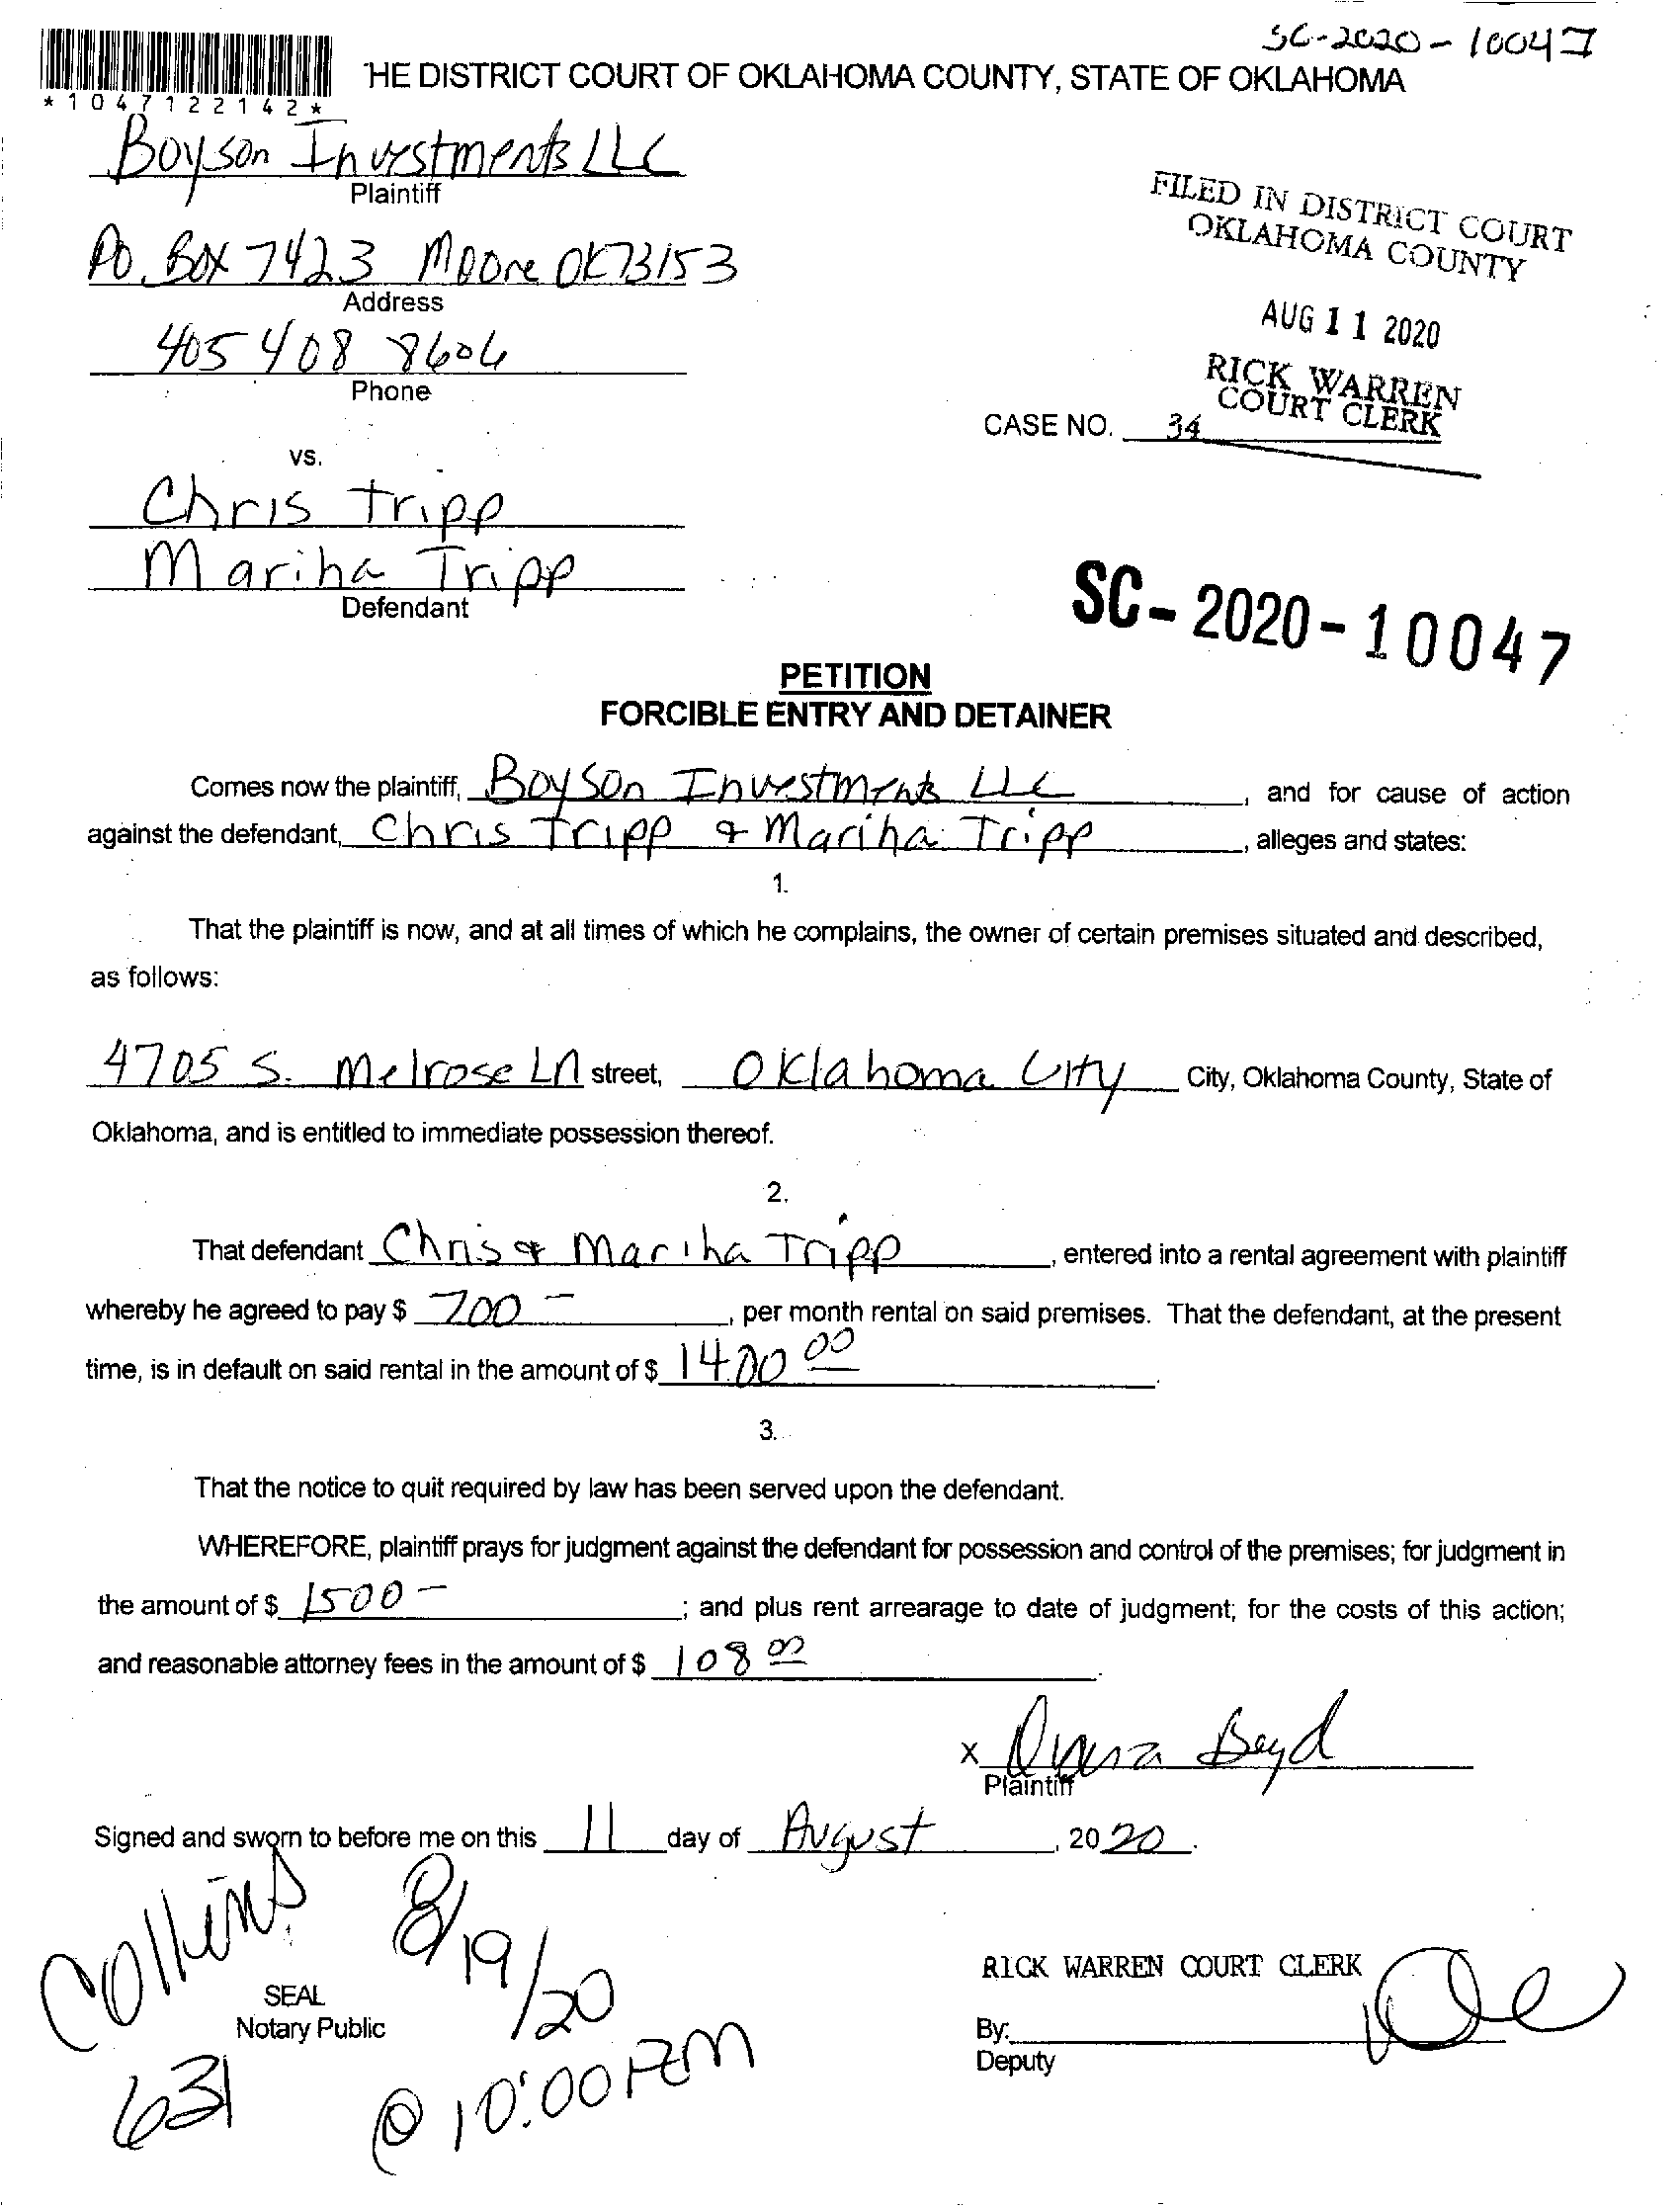 SC-2020-10047
*1047122142*
HE DISTRICT COURT OF OKLAHOMA COUNTY, STATE OF OKLAHOMA
Boyson Investments LLC
Plaintiff
FILED IN DISTRICT COURT
OKLAHOMA COUNTY
PO. Box 7423 Moore OK 73153
Address
AUG 11 2020
405 408 8604
Phone
RICK WARREN
COURT CLERK
CASE NO. 34
vs.
Chris Tripp
Mariha Tripp
Defendant
SC-2020-10047
PETITION
FORCIBLE ENTRY AND DETAINER
Comes now the plaintiff, Boyson Investments LLC, and for cause of action
against the defendant, Chris Tripp & Mariha Tripp, alleges and states:
1.
That the plaintiff is now, and at all times of which he complains, the owner of certain premises situated and described,
as follows:
4705 S. Melrose LN street, Oklahoma City City, Oklahoma County, State of
Oklahoma, and is entitled to immediate possession thereof.
2.
That defendant Chris & Mariha Tripp, entered into a rental agreement with plaintiff
whereby he agreed to pay $ 700 -, per month rental on said premises. That the defendant, at the present
time, is in default on said rental in the amount of $ 1400 00.
3.
That the notice to quit required by law has been served upon the defendant.
WHEREFORE, plaintiff prays for judgment against the defendant for possession and control of the premises; for judgment in
the amount of $ 1500 -; and plus rent arrearage to date of judgment; for the costs of this action;
and reasonable attorney fees in the amount of $ 108 00.
x Boyd
Plaintiff
Signed and sworn to before me on this 11 day of August, 2020.
Collins 8/19/20
RICK WARREN COURT CLERK
SEAL
Notary Public
By:
Deputy
631 @ 10:00 AM